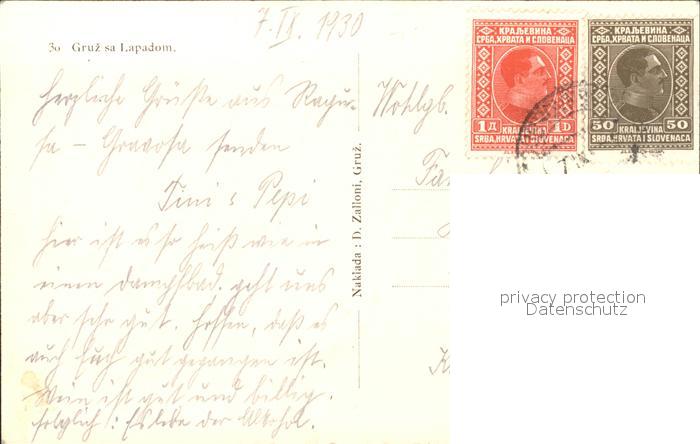 7. IX. 1930
30 Gruž sa Lapadom.
Herzliche Grüße aus Ragu-
sa - Gravosa senden
Tini & Pepi
hier ist es so heiß wie in
einem Dampfbad. geht uns
aber sehr gut. Hoffen, daß es
auch Euch gut gegangen ist.
Wein ist gut und billig.
folglich!: Es lebe der Alkohol.
Naklada : D. Zalloni, Gruž.
Wohlgb.
КРАЉЕВИНА
СРБА, ХРВАТА И СЛОВЕНАЦА
1Д 1D
KRALJEVINA
SRBA, HRVATA I SLOVENACA
КРАЉЕВИНА
СРБА, ХРВАТА И СЛОВЕНАЦА
50 50
KRALJEVINA
SRBA, HRVATA I SLOVENACA
privacy protection
Datenschutz